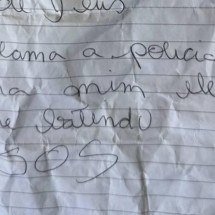 de Deus
lama a policia
a mim ele
e batendo
SOS